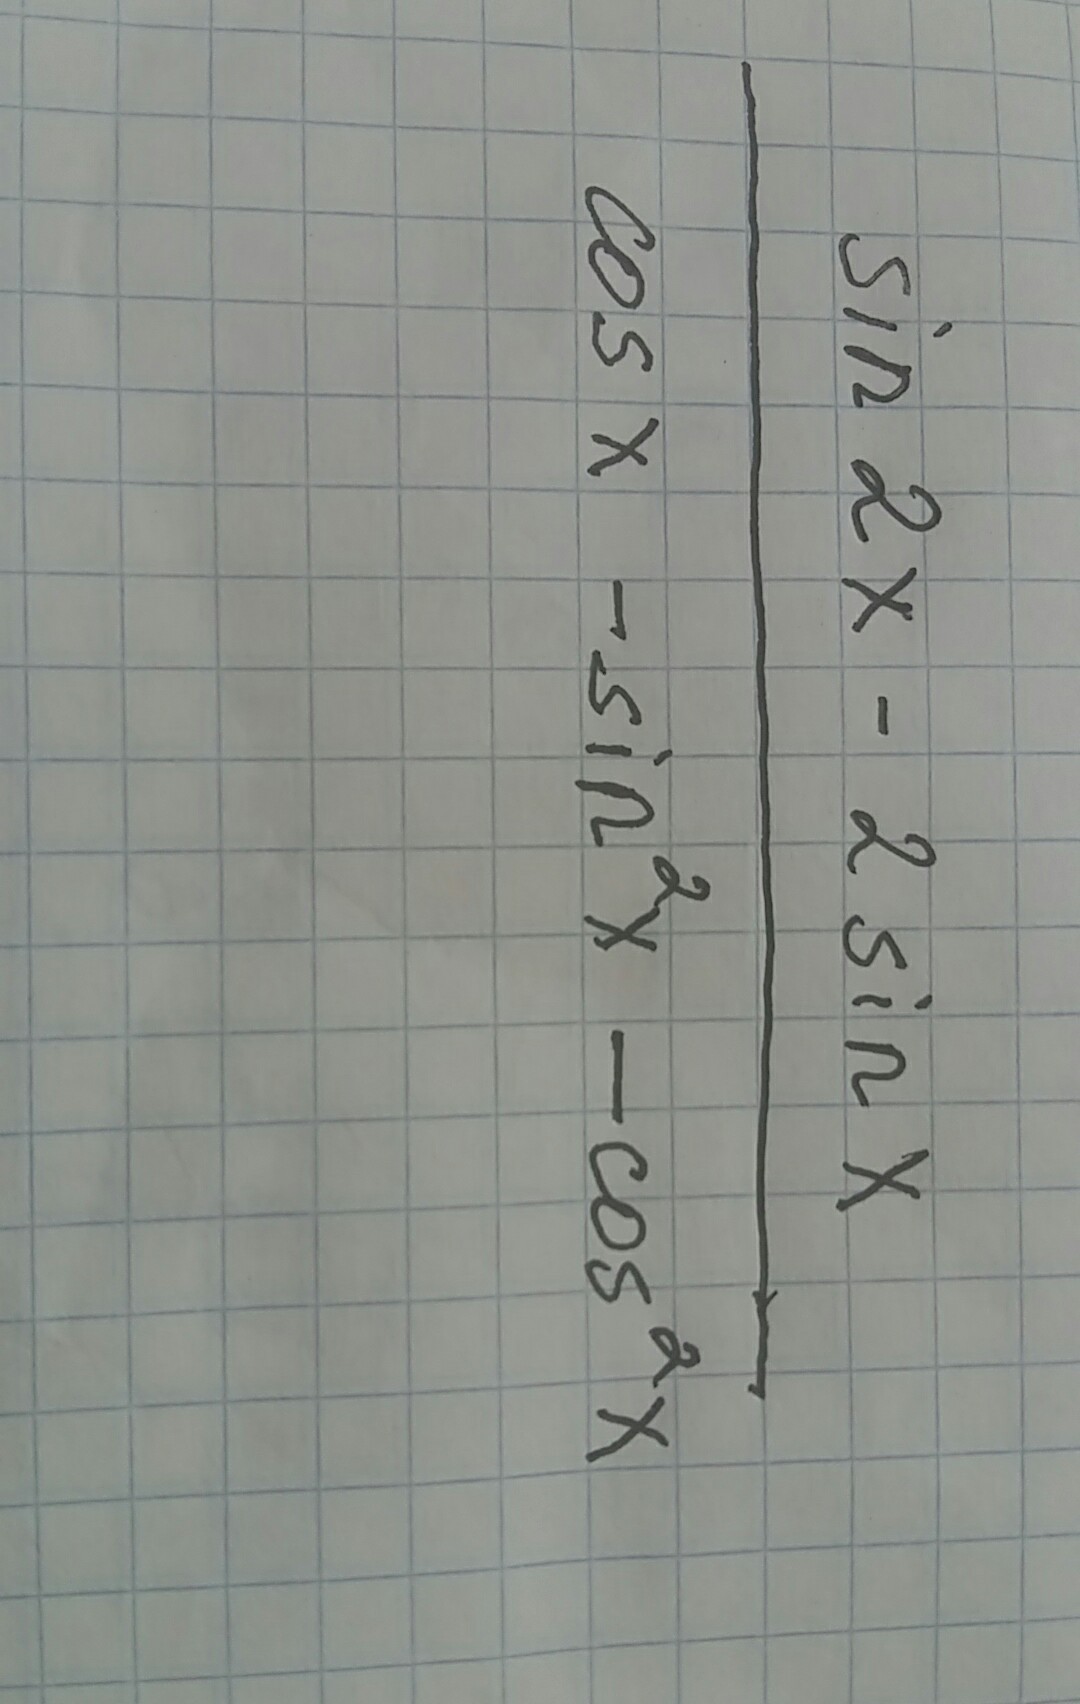 sin 2x - 2 sin x
cos x - sin²x - cos²x